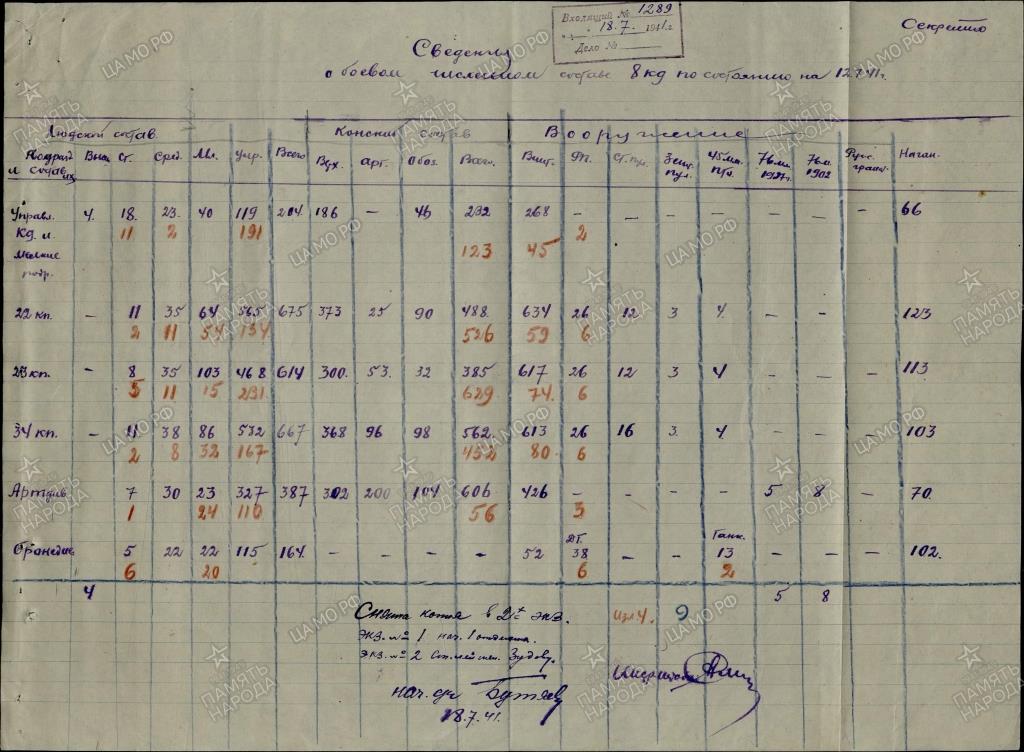 Входящий № 1289
18.7. 1941 г.
Дело №
Секретно
Сведения
о боевом численном составе 8 кд по состоянию на 12.7.41 г.
Людской состав Конский состав Вооружение
Подразд и состав их Выс Ст. Сред. Мл. Укр. Всего Вух. арт. Обоз. Всего. Винт. РП. Ст. пул. Зенит. пул. 45 мм. ПТО 76 мм. 1927 г. 76 м. 1902 Наган.
Управл. 4. 18. 23. 40 119 204. 186 — 46 232 268 — — — — — — — 66
кд. и 11 2 191 2
мелкие 123 45
подр.
22 кп. — 11 35 64 565 675 373 25 90 488. 634 26 12 3 4. — — 123
2 11 54 134 526 59 6
23 кп. — 8 35 103 468 614 300. 53. 32 385 617 26 12 3 4 — — — 113
5 11 15 231 629 74. 6
34 кп. — 11 38 86 532 667 368 96 98 562. 613 26 16 3. 4 — — — 103
2 8 32 167 452 80. 6
Артдив 7 30 23 327 387 302 200 104 606 426 — — — — 5 8 — 70
1 24 110 56 3
ДТ. Танк.
Бронедив 5 22 22 115 164. — — — — 52 38 — — 13 — — — 102.
6 20 6 2
4 5 8
Снята копия в 2х экз. 9
экз. № 1 нач. 1 отделения.
экз. № 2
нач.
18.7.41.
ЦАМО РФ
ПАМЯТЬ НАРОДА